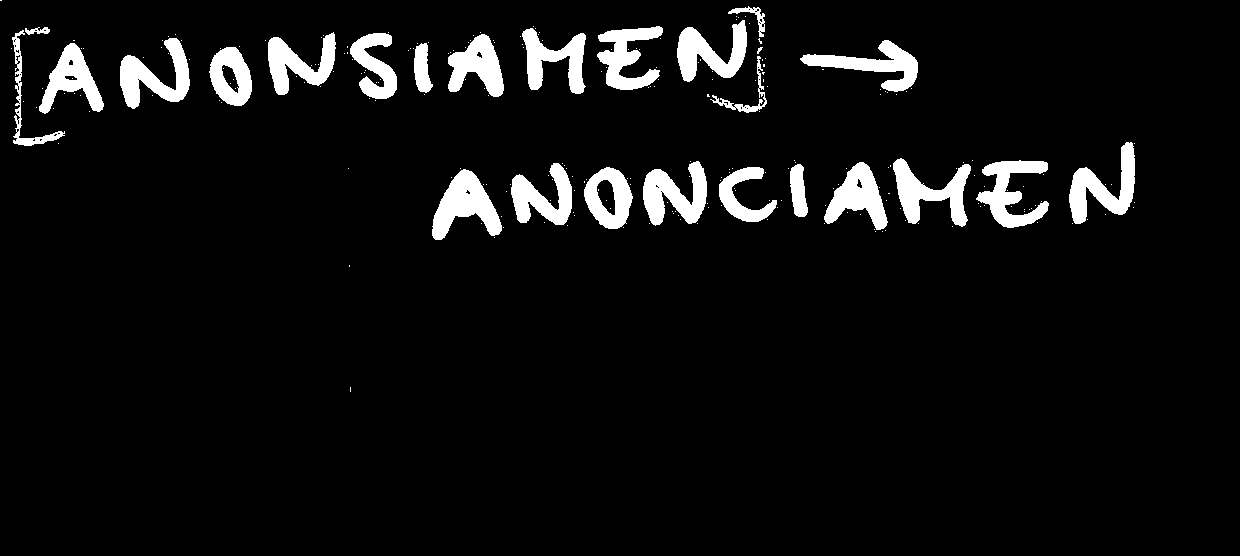 [ANONSIAMEN] →
ANONCIAMEN